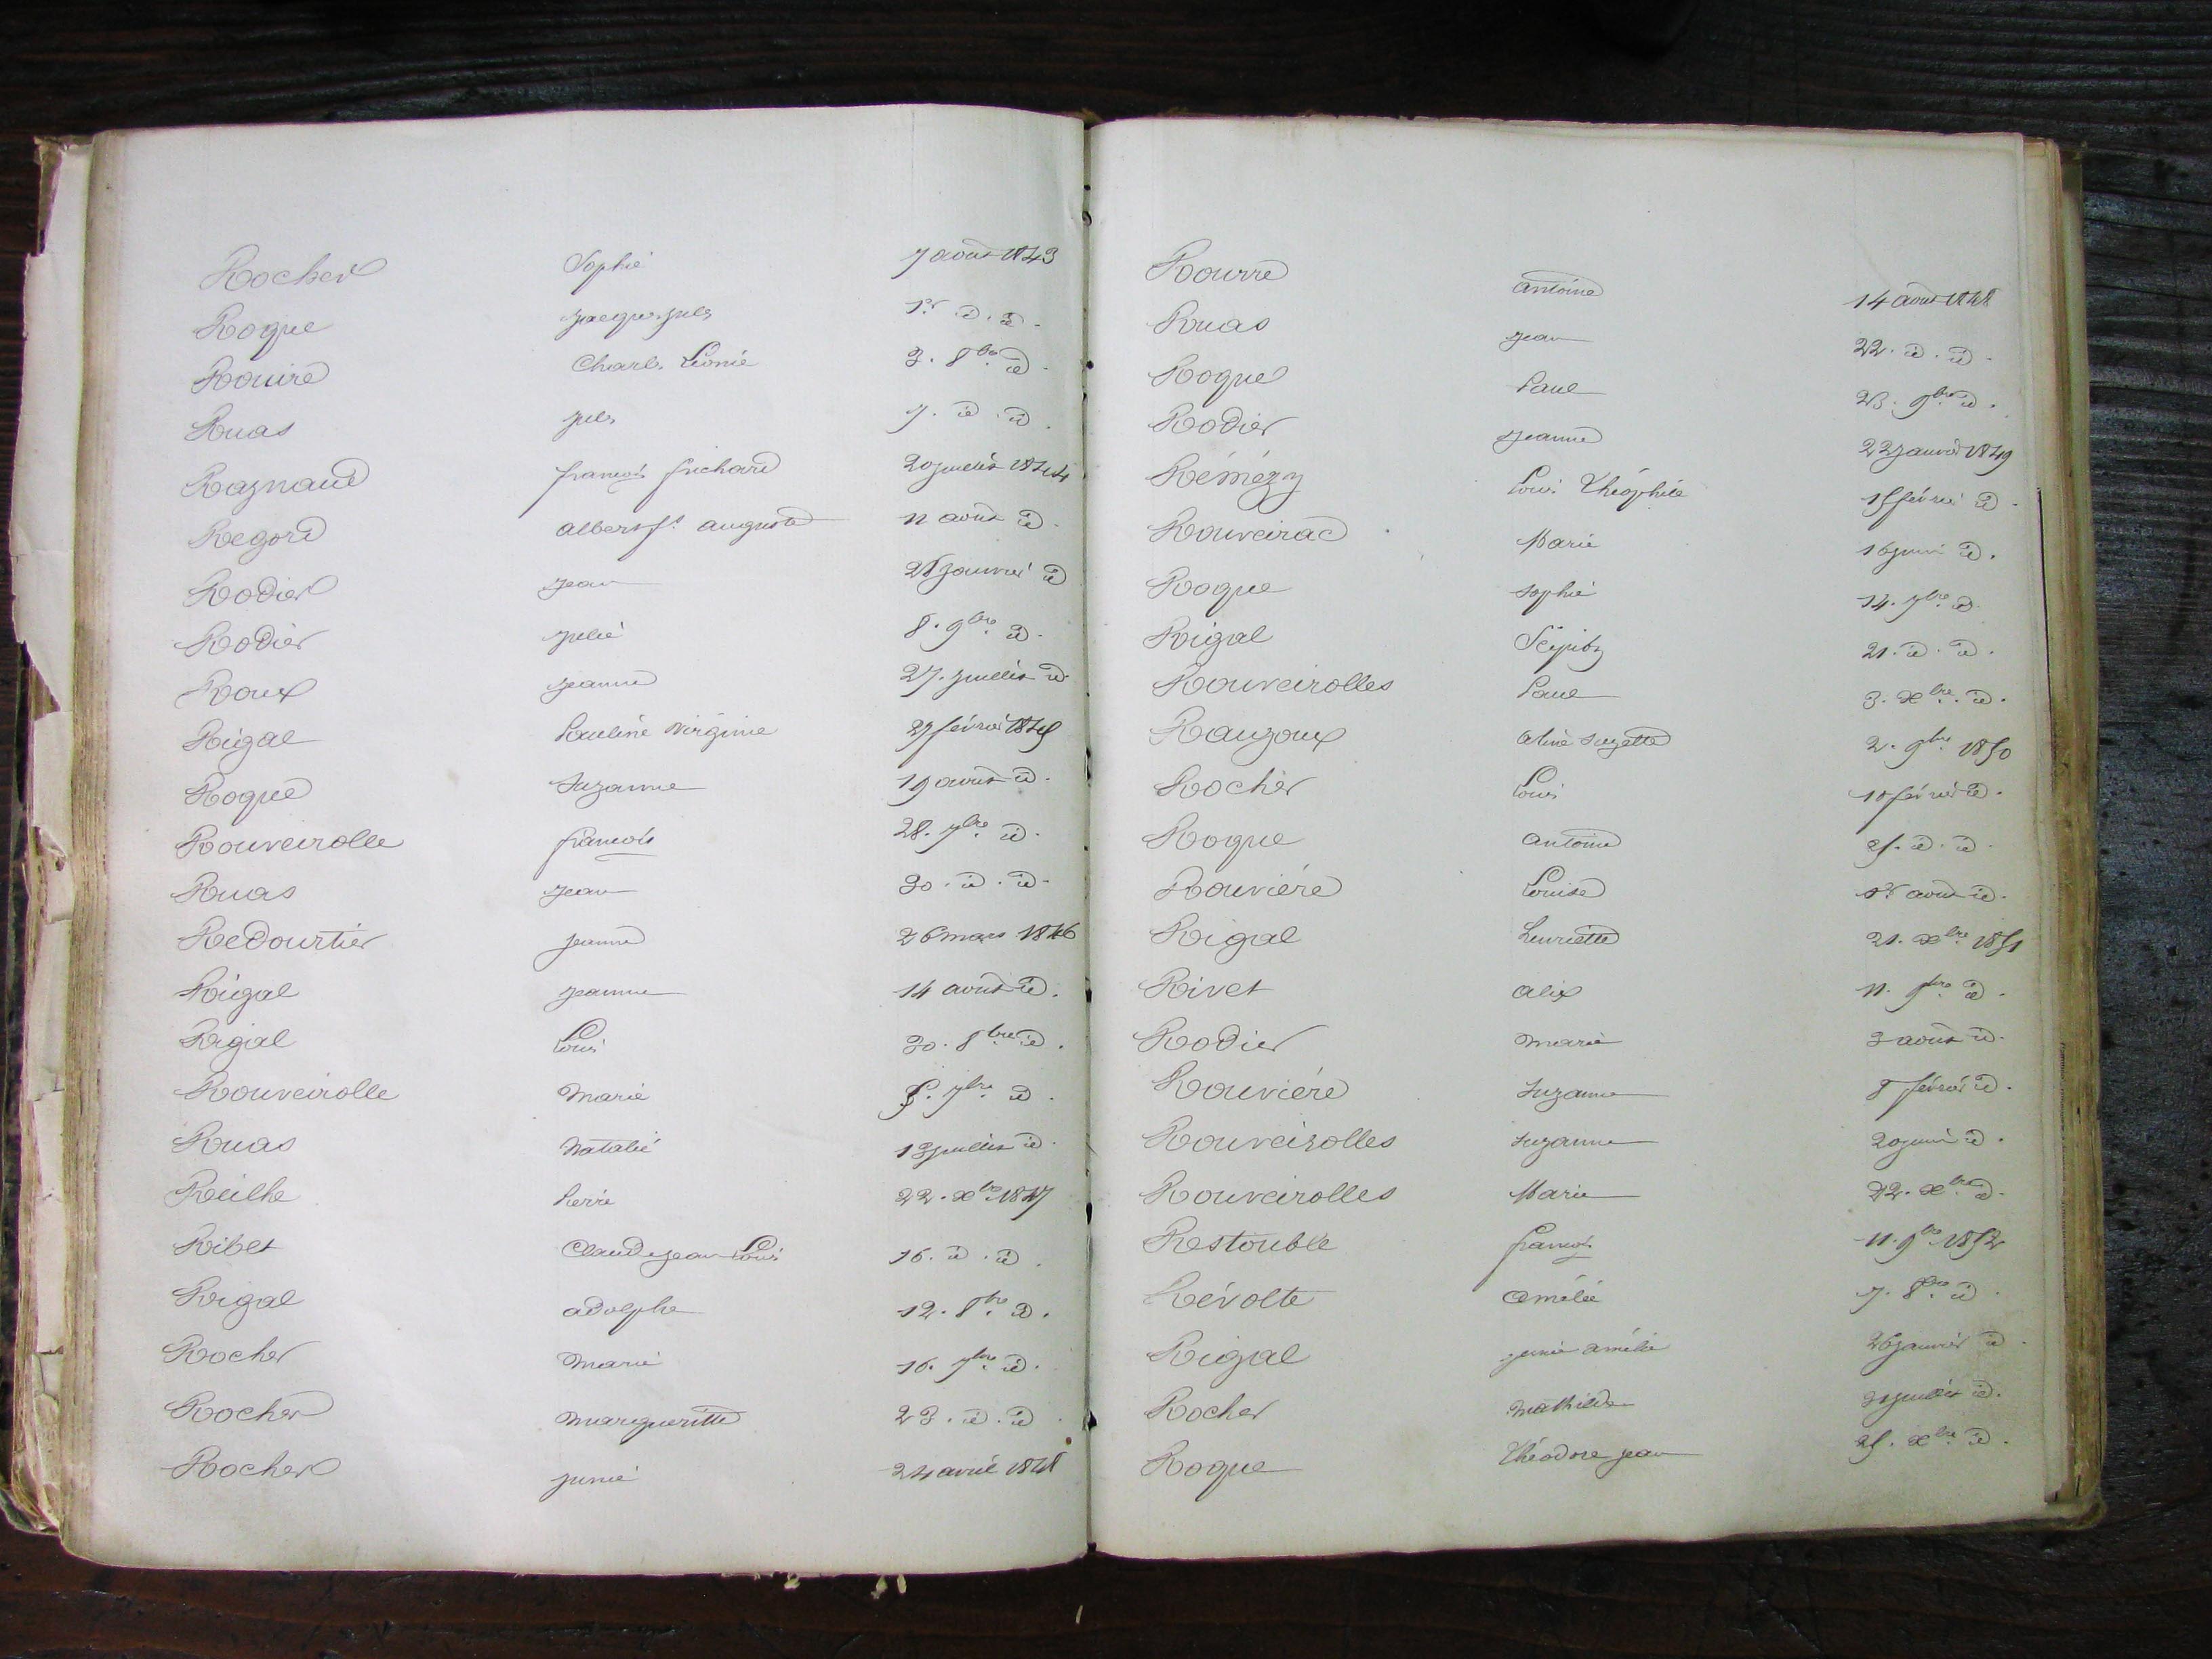 Rocher Sophie 7 août 1843
Roque Jacques Jules 1er id. id.
Rouire Charles Léonie 3. 8bre id.
Ruas Jules 7. id. id.
Raynaud françois frichard 20 juillet 1844
Regord albert fs auguste 11 août id.
Rodier Jean 28 janvier id
Rodier Julie 8. 9bre id.
Roux Jeanne 27. juillet id.
Rigal Pauline Virginie 27 février 1845
Roque Suzanne 19 août id.
Rouveirolle françois 28. 7bre id.
Ruas Jean 30. id. id.
Redourtier Jeanne 26 mars 1846
Rigal Jeanne 14 août id.
Rigal Louis 30. 8bre id.
Rouveirolle Marie 5. 7bre id.
Ruas Natalie 13 juillet id.
Reilhe Pierre 22. xbre 1847
Ribet Claude Jean Louis 16. id. id.
Rigal adolphe 12. 8bre id.
Rocher Marie 16. 7bre id.
Rocher Margueritte 23. id. id.
Rocher Junie 24 avril 1848
Rourre antoine 14 août 1848
Ruas Jean 22. id. id.
Roque Paul 23. 9bre id.
Rodier Jeanne 22 janvier 1849
Rémézy Louis Théophile 15 février id.
Rouveirac Marie 16 juin id.
Roque Sophie 14. 7bre id.
Rigal 21. id. id.
Rouveirolles Paul 3. xbre. id.
Rauzoux aline Suzette 2. 9bre 1850
Rocher Louis 18 février id.
Roque antoine id. id.
Rouvière Louise 1er août id.
Rigal henriette 21. xbre 1851
Rivet alix 11. 9bre id.
Rodier Marie 3 août id.
Rouvière Suzanne 8 février id.
Rouveirolles Suzanne 20 juin id.
Rouveirolles Marie 22. xbre id.
Restouble françois 11. 9bre 1852
Révolte amélie 7. 8bre id.
Rigal Junie amélie 26 janvier id.
Rocher Mathilde 31 juillet id.
Roque Théodore Jean 25. xbre id.